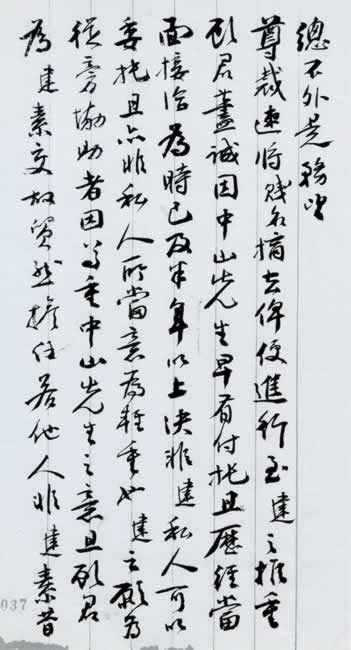 總不外是務望
尊裁速將賤名摘去俾便進行至建之推重
顧君藎誠因中山先生早有付托且歷經當
面接洽為時已及半年以上決非建私人可以
委托且亦非私人所當意為輕重也建之願為
從旁協助者因尊重中山先生之意且顧君
為建素交故貿然擔任若他人非建素昔
037